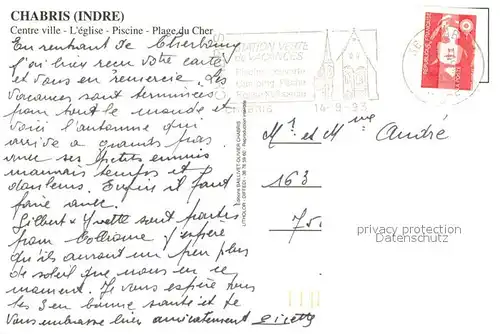 CHABRIS (INDRE)
Centre ville - L'église - Piscine - Plage du Cher
En rentrant de Cherbourg
j'ai bien reçu votre carte
et vous en remercie. Les
vacances sont terminées
pour tout le monde et
voici l'automne qui
arrive à grands pas
avec ses petits ennuis
mauvais temps et
douleurs. Enfin il faut
faire avec.
Gilbert & Yvette sont partis
pour
qu'ils auront un peu plus
de soleil que nous en ce
moment. Je vous espère tous
les 3 en bonne santé et je
vous embrasse bien amicalement
STATION VERTE
DE VACANCES
CHABRIS
14-9-93
RÉPUBLIQUE FRANÇAISE
Mr et Mme André
163
75
privacy protection
Datenschutz